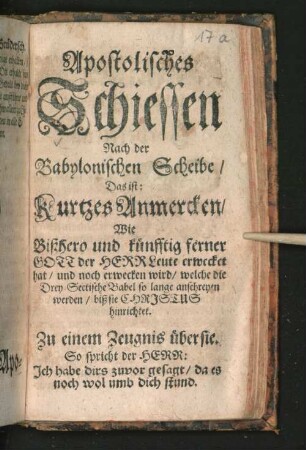 17 a
Apostolisches
Schiessen
Nach der
Babylonischen Scheibe/
Das ist:
Kurtzes Anmercken/
Wie
Bißhero und künfftig ferner
GOTT der HERR Leute erwecket
hat/ und noch erwecken wird/ welche die
Drey Sectische Babel so lange anschreyen
werden/ biß sie CHRISTUS
hinrichtet.
Zu einem Zeugnis über sie.
So spricht der HERR:
Ich habe dirs zuvor gesagt/ da es
noch wol umb dich stund.
Apo-